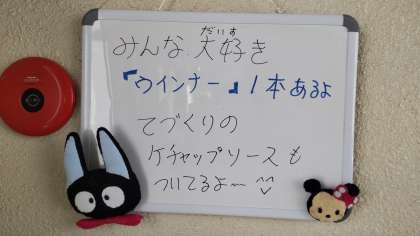 だいす
みんな大好き
『ウインナー』1本あるよ
てづくりの
ケチャップソースも
ついてるよ〜 ^^